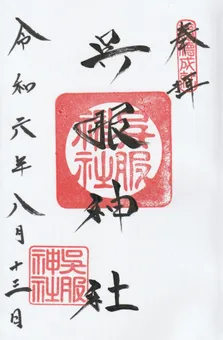 奉拝
呉服神社
呉服
神社
令和六年八月十三日
呉服
神社